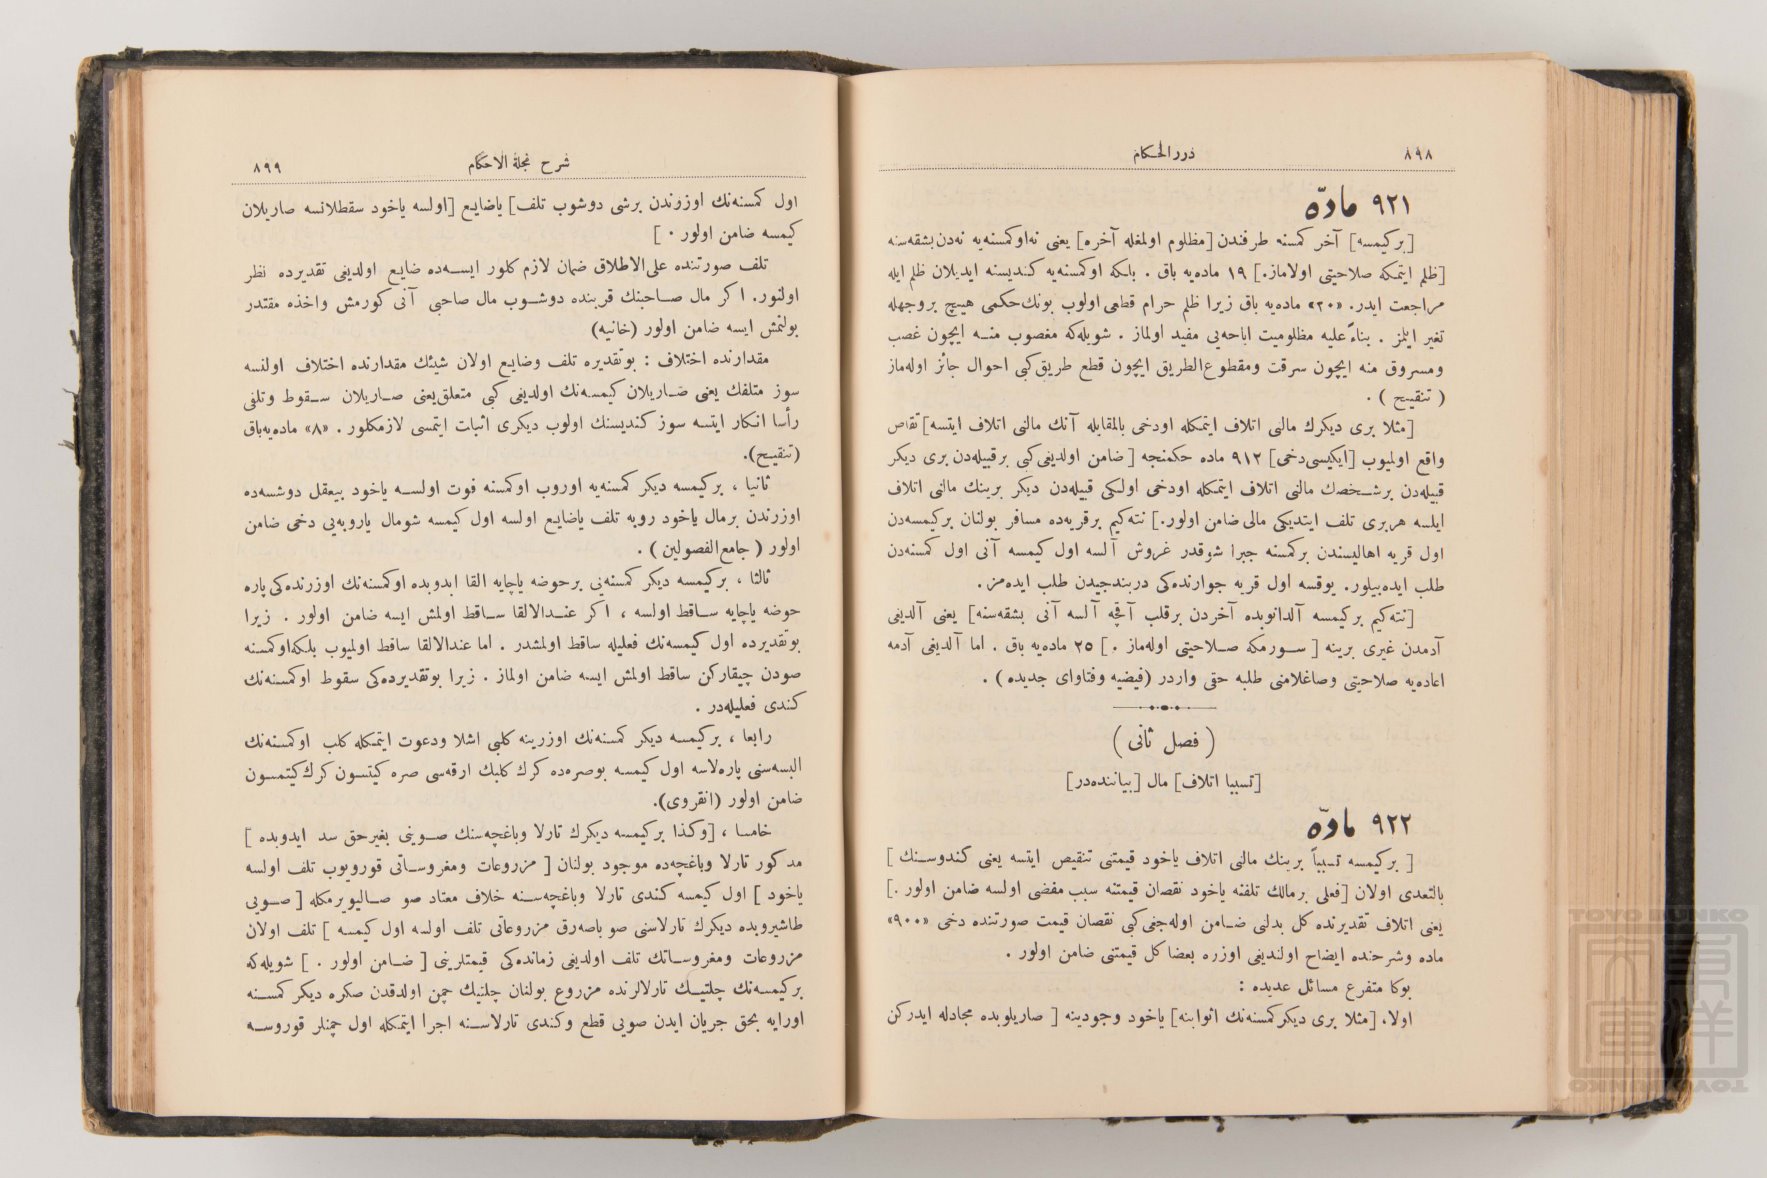 ٨٩٨
درر الحكام
٩٢١ مادّه
[بركيمسه] آخر كمسنه طرفندن [مظلوم اولمغله آخره] يعنى نه او كمسنه‌يه نه‌دن بشقه‌سنه
[ظلم ايتمكه صلاحيتى اولاماز.] ١٩ ماده‌يه باق . بلكه اوكمسنه‌يه كنديسنه ايديلان ظلم ايله
مراجعت ايدر. «٢٠» ماده‌يه باق زيرا ظلم حرام قطعى اولوب بونك حكمى هيچ بر وجهله
تغير ايلمز . بناءً عليه مظلوميت اباحه‌يى مفيد اولماز . شويله‌كه مغصوب منه ايچون غصب
ومسروق منه ايچون سرقت ومقطوع الطريق ايچون قطع طريق كبى احوال جائز اوله‌ماز
( تنقيح ) .
[مثلا برى ديكرك مالنى اتلاف ايتمكله اودخى بالمقابله آنك مالنى اتلاف ايتسه] تقاص
واقع اولميوب [ايكيسى دخى] ٩١٢ ماده حكمنجه [ضامن اولديغى كبى بر قبيله‌دن برى ديكر
قبيله‌دن بر شخصك مالنى اتلاف ايتمكله اودخى اولكى قبيله‌دن ديكر برينك مالنى اتلاف
ايلسه هر برى تلف ايتديكى مالى ضامن اولور.] نته‌كيم بر قريه‌ده مسافر بولنان بركيمسه‌دن
اول قريه اهاليسندن بركمسنه جبرا شو قدر غروش آلسه اول كيمسه آنى اول كمسنه‌دن
طلب ايده‌بيلور. يوقسه اول قريه جوارنده‌كى دربندجيدن طلب ايده‌مز.
[نته‌كيم بركيمسه آلدانوبده آخردن برقلب آقچه آلسه آنى بشقه‌سنه] يعنى آلديغى
آدمدن غيرى برينه [ سورمكه صلاحيتى اوله‌ماز . ] ٢٥ ماده‌يه باق . اما آلديغى آدمه
اعاده‌يه صلاحيتى وصاغلامنى طلبه حقى واردر (فيضيه وفتاواى جديده) .
( فصل ثانى )
[تسببا اتلاف] مال [بياننده‌در]
٩٢٢ مادّه
[ بركيمسه تسبباً برينك مالنى اتلاف ياخود قيمتنى تنقيص ايتسه يعنى كندوسنك ]
بالتعدى اولان [فعلى بر مالك تلفنه ياخود نقصان قيمتنه سبب مفضى اولسه ضامن اولور .]
يعنى اتلاف تقديرنده كل بدلنى ضامن اوله‌جغى كبى نقصان قيمت صورتنده دخى «٩٠٠»
ماده وشرحنده ايضاح اولنديغى اوزره بعضا كل قيمتنى ضامن اولور .
بوكا متفرع مسائل عديده :
اولا، [مثلا برى ديكر كمسنه‌نك اثوابنه] ياخود وجودينه [ صاريلوبده مجادله ايدركن
شرح مجلة الاحكام
٨٩٩
اول كمسنه‌نك اوزرندن برشى دوشوب تلف] ياضايع [اولسه ياخود سقطلانسه صاريلان
كيمسه ضامن اولور . ]
تلف صورتنده على‌الاطلاق ضمان لازم كلور ايسه‌ده ضايع اولديغى تقديرده نظر
اولنور. اكر مال صاحبنك قربنده دوشوب مال صاحبى آنى كورمش واخذه مقتدر
بولنمش ايسه ضامن اولور (خانيه)
مقدارنده اختلاف : بوتقديره تلف وضايع اولان شيئك مقدارنده اختلاف اولنسه
سوز متلفك يعنى صاريلان كيمسه‌نك اولديغى كبى متعلق يعنى صاريلان سقوط وتلفى
رأسا انكار ايتسه سوز كنديسنك اولوب ديكرى اثبات ايتمسى لازمكلور . «٨» ماده‌يه باق
(تنقيح).
ثانيا ، بركيمسه ديكر كمسنه‌يه اوروب اوكمسنه فوت اولسه ياخود بيعقل دوشسه‌ده
اوزرندن برمال ياخود روبه تلف ياضايع اولسه اول كيمسه شومال ياروبه‌يى دخى ضامن
اولور ( جامع الفصولين ) .
ثالثا ، بركيمسه ديكر كمسنه‌يى برحوضه ياچايه القا ايدوبده اوكمسنه‌نك اوزرنده‌كى پاره
حوضه ياچايه ساقط اولسه ، اكر عند الالقا ساقط اولمش ايسه ضامن اولور . زيرا
بوتقديرده اول كيمسه‌نك فعليله ساقط اولمشدر . اما عندالالقا ساقط اولميوب بلكه اوكمسنه
صودن چيقاركن ساقط اولمش ايسه ضامن اولماز . زيرا بوتقديرده‌كى سقوط اوكمسنه‌نك
كندى فعليله‌در .
رابعا ، بركيمسه ديكر كمسنه‌نك اوزرينه كلبى اشلا ودعوت ايتمكله كلب اوكمسنه‌نك
البسه‌سنى پاره‌لاسه اول كيمسه بوصره‌ده كرك كلبك ارقه‌سى صره كيتسون كرك كيتمسون
ضامن اولور (انقروى).
خامسا ، [وكذا بركيمسه ديكرك تارلا وباغچه‌سنك صوينى بغير حق سد ايدوبده ]
مذكور تارلا وباغچه‌ده موجود بولنان [ مزروعات ومغروساتى قورويوب تلف اولسه
ياخود ] اول كيمسه كندى تارلا وباغچه‌سنه خلاف معتاد صو صاليويرمكله [ صويى
طاشيروبده ديكرك تارلاسنى صو باصه‌رق مزروعاتى تلف اولسه اول كيمسه ] تلف اولان
مزروعات ومغروساتك تلف اولديغى زمانده‌كى قيمتلرينى [ ضامن اولور . ] شويله‌كه
بركيمسه‌نك چلتيك تارلالرنده مزروع بولنان چلتيك چمن اولدقدن صكره ديكر كمسنه
اورايه بحق جريان ايدن صويى قطع وكندى تارلاسنه اجرا ايتمكله اول چمنلر قوروسه
TOYO BUNKO
東洋文庫
TOYO BUNKO